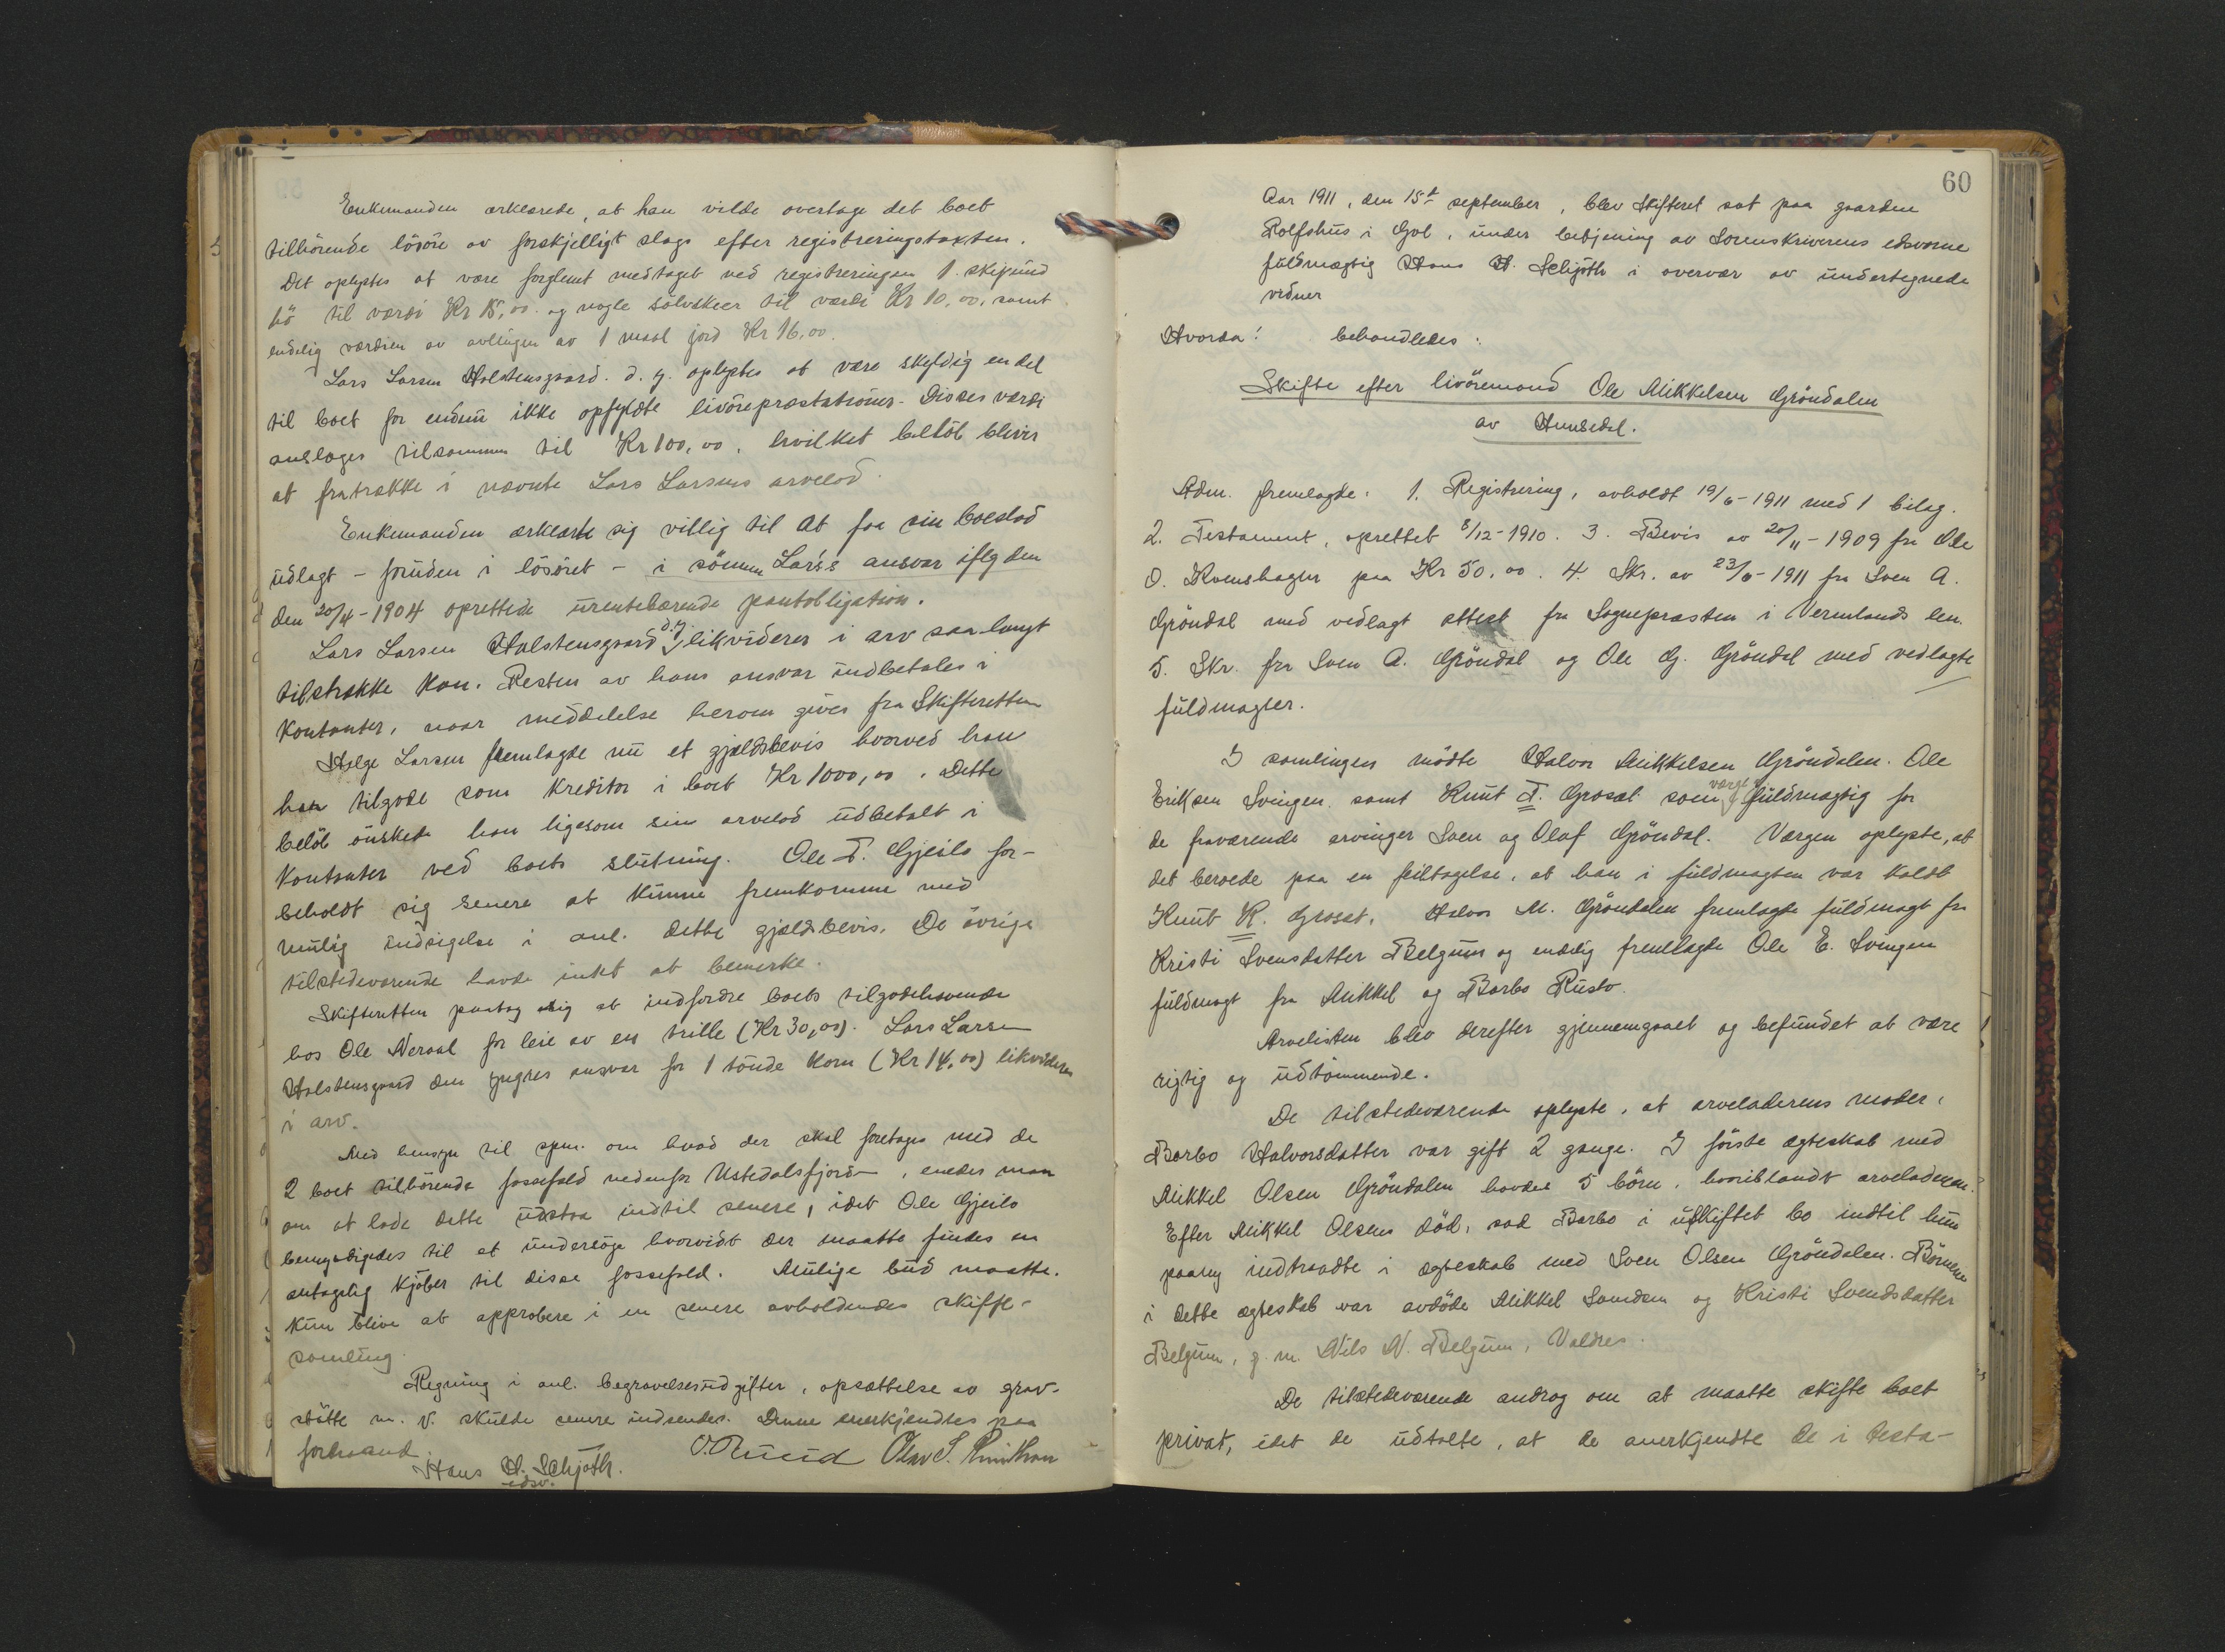 Enkemanden erklærede, at han vilde overtage det boet
tilhörende lösöre av forskjelligt slags efter registreringstaxten.
Det oplystes at være forglemt medtaget ved registreringen 1. skipund
hö til værdi Kr 15,00. og nogle sölvskeer til værdi Kr 10,00, samt
endelig værdien av avlingen av 1 maal jord Kr 16,00.
Lars Larsen Holstensgaard. d. y. oplystes at være skyldig en del
til boet for endnu ikke opfyldte livörepræstationer. Disses værdi
ansloges tilsammen til Kr 100,00, hvilket belöb bliver
at fratrække i nævnte Lars Larsens arvelod.
Enkemanden erklærte sig villig til at faa sin boeslod
udlagt - foruden i lösöret - i sönnen Lars's ansvar iflg den
den 20/4-1904 oprettede urentebærende pantobligation.
Lars Larsen Holstensgaard d.y. likviderer i arv saa langt
tilstrække kan. Resten av hans ansvar indbetales i
kontanter, naar meddelelse herom gives fra Skifteretten
Helge Larsen fremlagde nu et gjældsbevis hvorved han
har tilgode som kreditor i boet Kr 1000,00. Dette
belöb önskede han ligesom sin arvelod udbetalt i
kontanter ved boets slutning. Ole T. Gjeilo for-
beholdt sig senere at kunne fremkomme med
mulig indsigelse i anl. dette gjældsbevis. De övrige
tilstedeværende havde intet at bemerke.
Skifteretten paatog sig at indfordre boets tilgodehavende
hos Ole Neraal for leie av en trille (Kr 30,00). Lars Larsen
Holstensgaard den yngres ansvar for 1 tönde korn (Kr 14,00) likvideres
i arv.
Med hensyn til spm. om hvad der skal foretages med de
2 boet tilhörende fossefald nedenfor Ustedalsfjord, enedes man
om at lade dette udstaa indtil senere, idet Ole Gjeilo
bemyndigedes til at undersöge hvorvidt der maatte findes en
antagelig kjöber til disse fossefald. Mulige bud maatte.
kun blive at approbere i en senere avholdendes skifte-
samling.
Regning i anl. begravelsesudgifter, opsættelse av grav-
stötte m. v. skulde senere indsendes. Denne anerkjendtes paa
forhaand.
Hans H. Schjöth. O. Ruud Olav S.
edsv.
60
Aar 1911, den 15de september, blev skifteret sat paa gaarden
Rolfshus i Gol, under betjening av Sorenskriverens edsvorne
fuldmægtig Hans H. Schjöth i overvær av undertegnede
vidner
Hvorda! behandledes:
Skifte efter livöremand Ole Mikkelsen Gröndalen
av Hemsedal.
Adm. fremlagde: 1. Registrering, avholdt 19/6-1911 med 1 bilag.
2. Testament, oprettet 8/12-1910. 3. Bevis av 20/11-1909 fra Ole
O. Kvenshagen paa Kr 50,00. 4. Skr. av 23/6-1911 fra Sven A.
Gröndal med vedlagt attest fra Sognepræsten i Vermlands len.
5. Skr. fra Sven A. Gröndal og Ole G. Gröndal med vedlagte
fuldmagter.
I samlingen mödte Halvor Mikkelsen Gröndalen. Ole
Eriksen Svingen. samt Knut T. Grosæt som værge og fuldmægtig for
de fraværende arvinger Sven og Olaf Gröndal. Værgen oplyste, at
det beroede paa en feiltagelse, at han i fuldmagten var kaldt
Knut K. Grosæt. Halvor M. Gröndalen fremlagde fuldmagt fra
Kristi Svensdatter Belgum og endelig fremlagde Ole E. Svingen
fuldmagt fra Mikkel og Barbo Rusto.
Arvelisten blev derefter gjennemgaaet og befundet at være
rigtig og udtömmende.
De tilstedeværende oplyste, at arveladerens moder,
Barbo Halvorsdatter var gift 2 gange. I förste ægteskab med
Mikkel Olsen Gröndalen havdes 5 börn, hvoriblandt arveladeren.
Efter Mikkel Olsens död, sad Barbo i uskiftet bo indtil hun
paany indtraadte i ægteskab med Sven Olsen Gröndalen. Börnene
i dette ægteskab var avdöde Mikkel Svendsen og Kristi Svendsdatter
Belgum, g. m. Nils N. Belgum, Valdres.
De tilstedeværende androg om at maatte skifte boet
privat, idet de udtalte, at de anerkjendte de i testa-